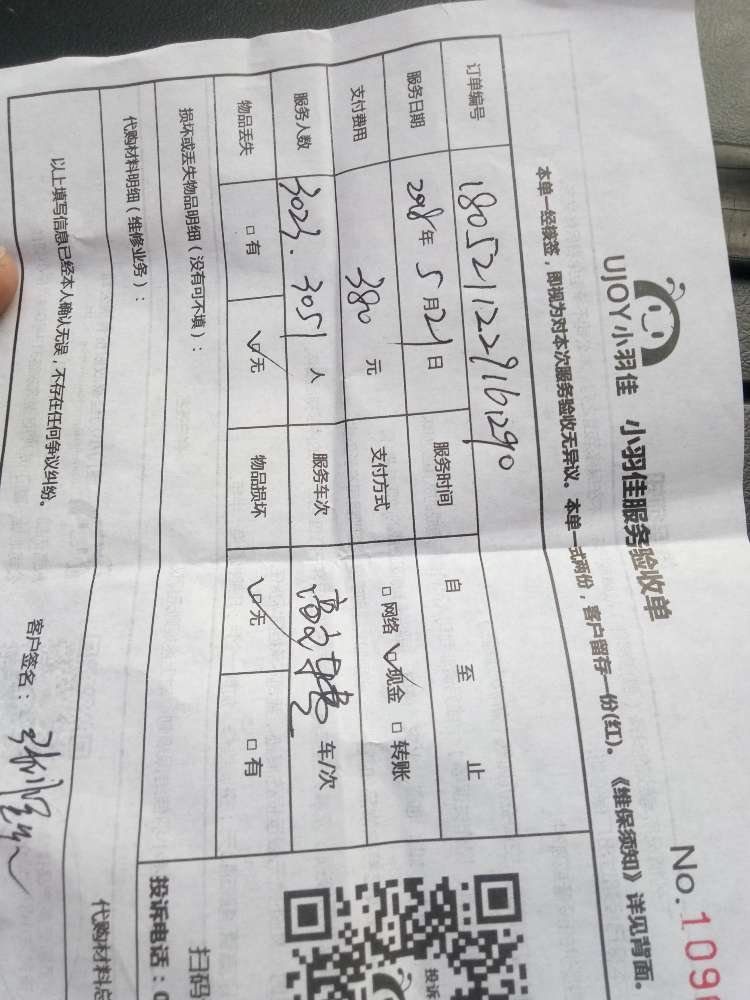 UJOY小羽佳 小羽佳服务验收单
No.109
本单一经接签，即视为对本次服务验收无异议。本单一式两份，客户留存一份(红)。《维保须知》详见背面。
订单编号 180521122916290
服务日期 2018年5月21日 服务时间 自 至 止
支付费用 380元 支付方式 □网络 ☑现金 □转账
服务人数 3023.3051人 服务车次 车/次
物品丢失 □有 ☑无 物品损坏 ☑无 □有
损坏或丢失物品明细（没有可不填）：
代购材料明细（维修业务）：
代购材料总
以上填写信息已经本人确认无误，不存在任何争议纠纷。
客户签名：
投诉
扫码
投诉电话：0